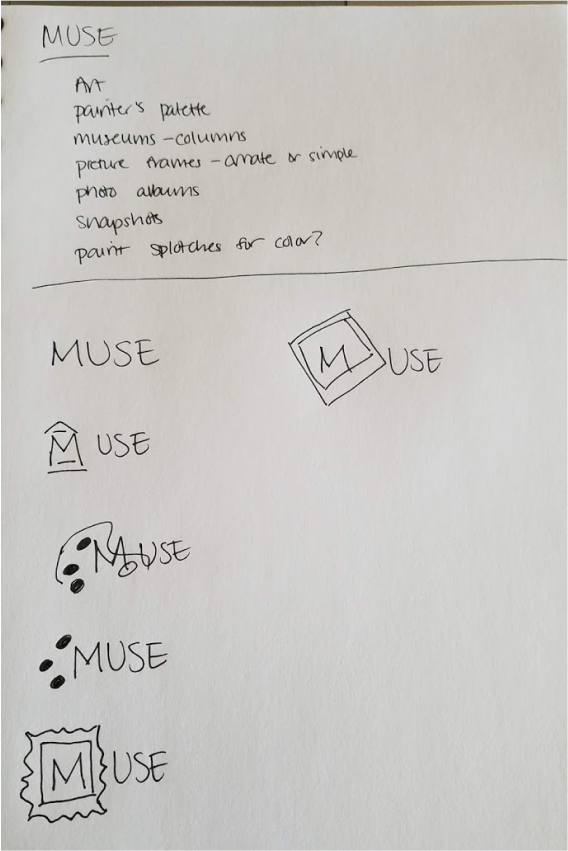 MUSE
Art
painter's palette
museums - columns
picture frames - ornate or simple
photo albums
snapshots
paint splotches for color?
MUSE
MUSE
MUSE
MUSE
MUSE
MUSE